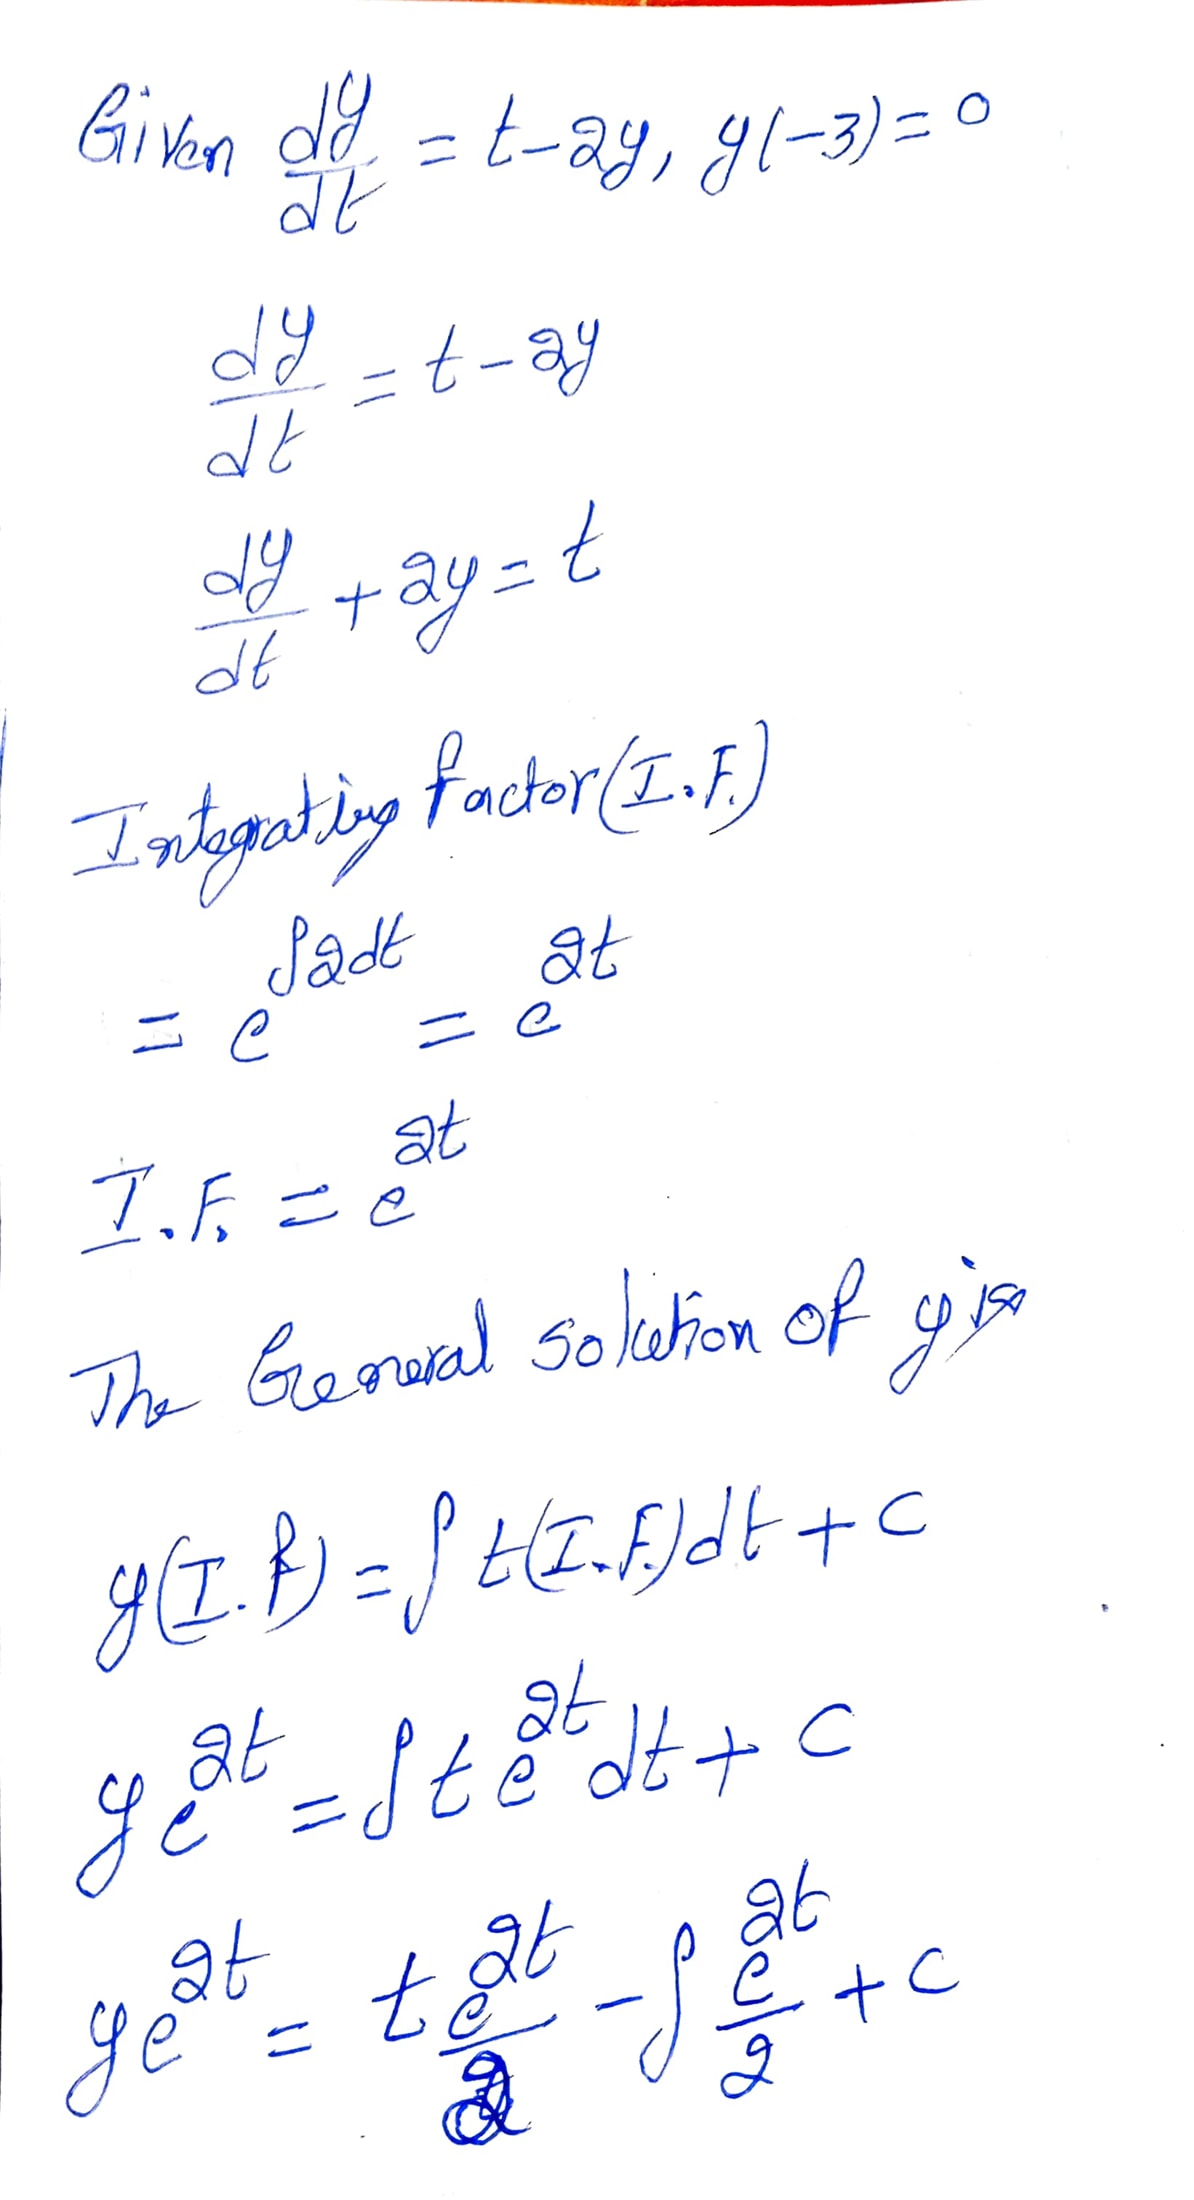 Given dy/dt = t-2y, y(-3)=0
dy/dt = t-2y
dy/dt + 2y = t
Integrating factor (I.F.)
= e^∫2dt = e^2t
I.F. = e^2t
The General solution of y is
y(I.F) = ∫ t(I.F.)dt + C
ye^2t = ∫ t e^2t dt + C
ye^2t = t e^2t/2 - ∫ e^2t/2 + C